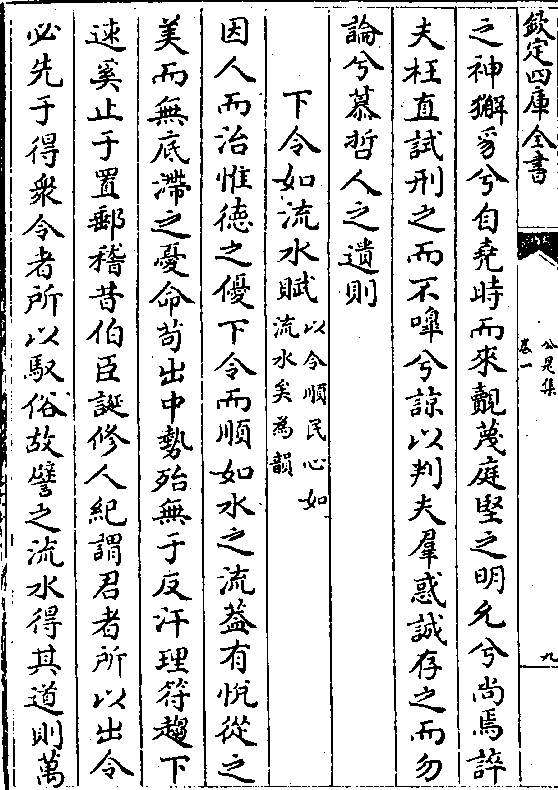 欽定四庫全書
公是集
卷一
九
之神獬豸兮自堯時而來覿蔑庭堅之明允兮尚焉誶
夫枉直試刑之而不嘷兮諒以判夫羣惑誠存之而勿
論兮慕哲人之遺則
下令如流水賦以令順民心如流水矣為韻
因人而治惟德之優下令而順如水之流葢有悅從之
美而無底滯之憂命茍出中勢殆無于反汗理符趨下
速奚止于置郵稽昔伯臣誕修人紀謂君者所以出令
必先于得衆令者所以馭俗故譬之流水得其道則萬